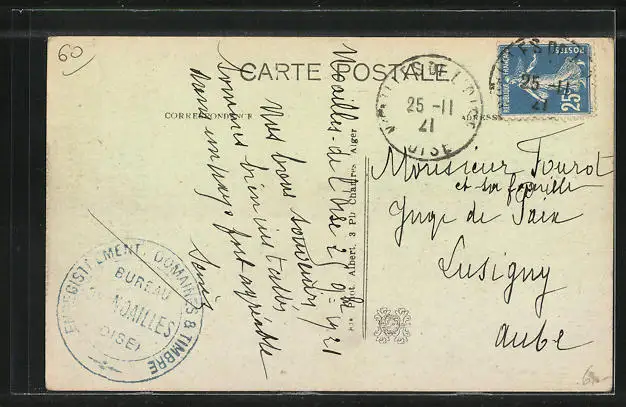 60
CARTE POSTALE
CORRESPONDANCE
ADRESSE
DE L'OISE
25 -11
21
OISE
25 -11
21
POSTES
REPUBLIQUE FRANÇAISE
25
Noailles-de-l'Oise 25 9bre 1921
Nos bons souvenirs
Sommes bien installés
dans un pays fort agréable
Phot. Albert, 3 Pl. Chartres Alger
Monsieur Tourot
et sa famille
Juge de Paix
Lusigny
Aube
ENREGISTREMENT, DOMAINES & TIMBRE
BUREAU
DE NOAILLES
(OISE)